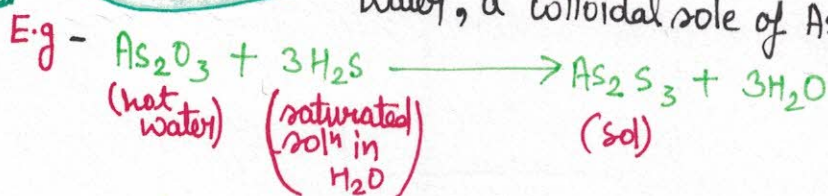 water, a colloidal sole of As
E.g - As₂O₃ + 3H₂S ⟶ As₂S₃ + 3H₂O
(hot water) (saturated solⁿ in H₂O) (sol)